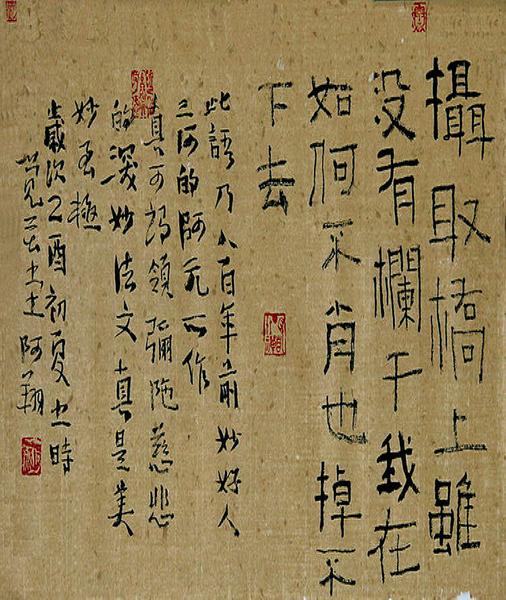 攝取橋上雖
没有欄干我在
如何不肖也掉不
下去
此語乃八百年前妙好人
三河的阿元所作
真可謂領彌陀慈悲
的深妙法文真是美
妙至極
歲次乙酉初夏之時
阿翔